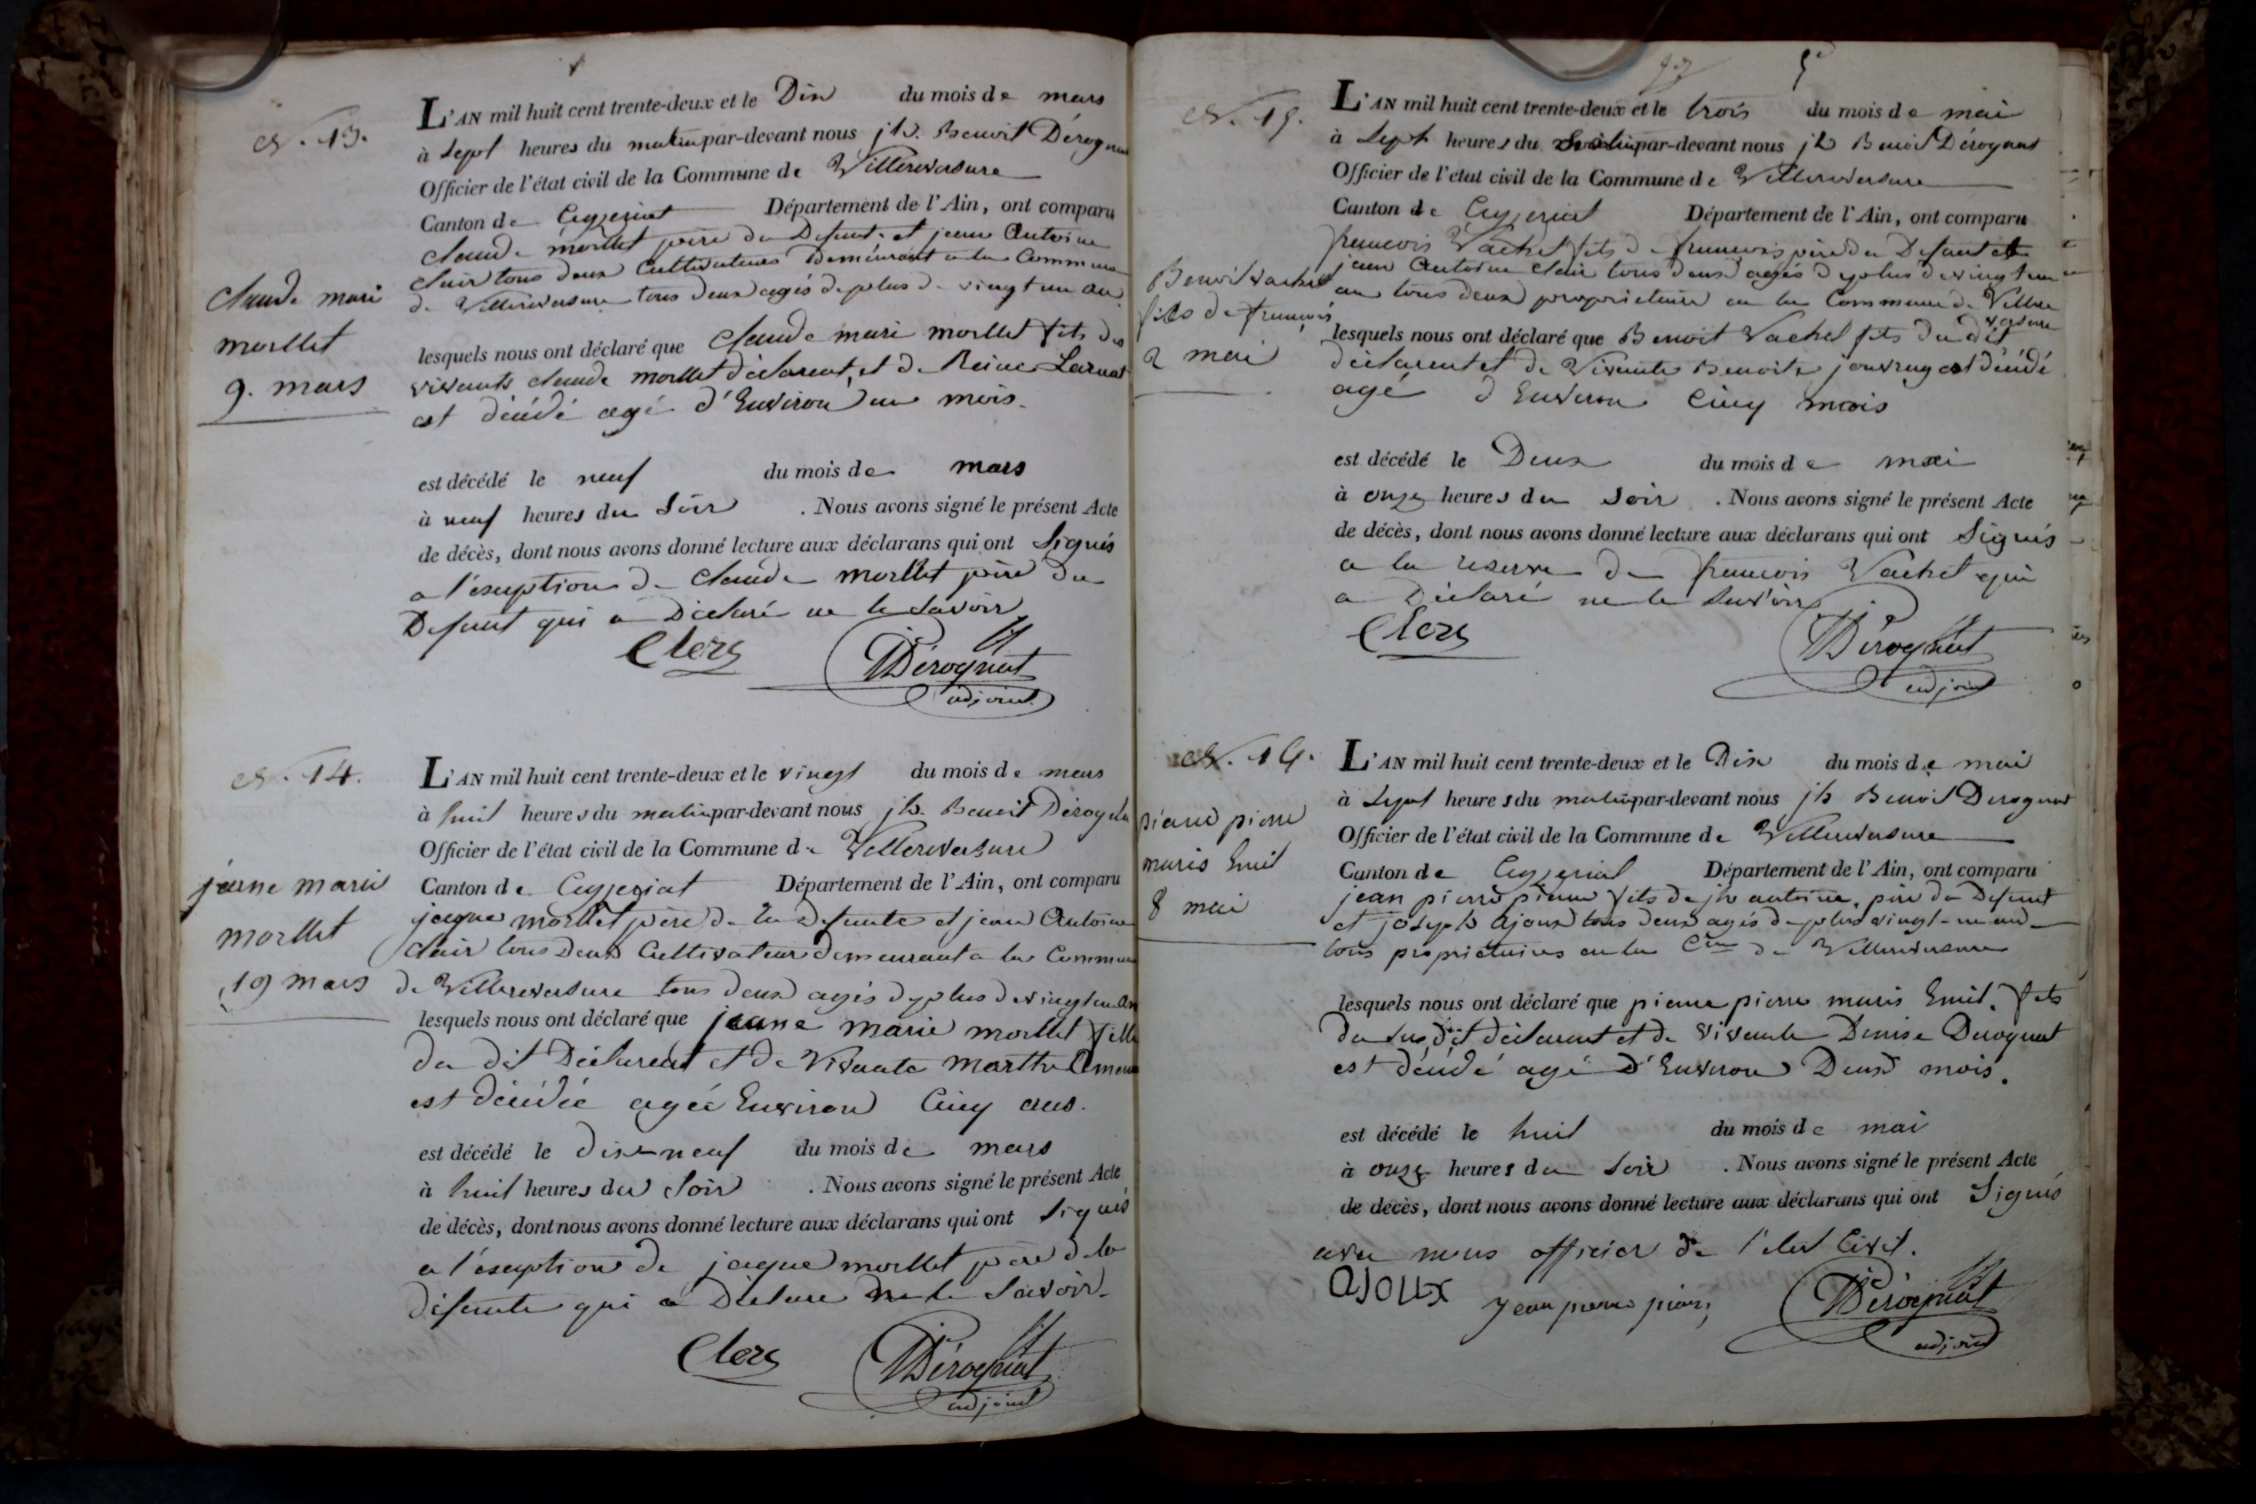 N. 13.
L'AN mil huit cent trente-deux et le Dix du mois de mars
à Sept heures du matin par-devant nous jh. Benoit Dérognat
Officier de l'état civil de la Commune de Villereversure
Canton de Ceyzeriat Département de l'Ain, ont comparu
claude morllet père du Defunt et jean Antoine
clair tous deux Cultivateurs Demeurant a la Commune
de Villereversure tous deux agés de plus de vingt un an
claude marie
morllet
9. mars
lesquels nous ont déclaré que claude marie morllet fils des
vivants claude morllet déclarent, et de Reine
est décédé agé d'Environ un mois.
est décédé le neuf du mois de mars
à neuf heures du Soir . Nous avons signé le présent Acte
de décès, dont nous avons donné lecture aux déclarans qui ont Signés
a l'exception de claude morllet père du
Defunt qui a Déclaré ne le Savoir
Clerc Dérognat
adjoint
N. 14.
L'AN mil huit cent trente-deux et le vingt du mois de mars
à huit heures du matin par-devant nous jh. Benoit Dérognat
Officier de l'état civil de la Commune de Villereversure
Canton de Ceyzeriat Département de l'Ain, ont comparu
jaque morllet père de la defunte et jean Antoine
Clair tous Deux Cultivateur demeurant a la Commune
de Villereversure tous deux agés de plus de vingt un an
jeane marie
morllet
19 mars
lesquels nous ont déclaré que jeane marie morllet fille
du dit Déclarent et de Vivante Marthe
est décédée agée Environ Cinq ans.
est décédé le dix-neuf du mois de mars
à huit heures du Soir . Nous avons signé le présent Acte
de décès, dont nous avons donné lecture aux déclarans qui ont Signés
a l'exception de jaque morllet père de la
défunte qui a Déclare ne le Savoir.
Clerc Dérognat
adjoint
N. 15.
L'AN mil huit cent trente-deux et le trois du mois de mai
à Sept heures du matin par-devant nous jh Benoit Dérognat
Officier de l'état civil de la Commune de Villereversure
Canton de Ceyzeriat Département de l'Ain, ont comparu
francois Vachet fils de françois père du Defunt et
jean Antoine clair tous deux agés de plus de vingt un
an tous deux proprietaire en la Commune de Villere
versure
Benoit vachet
fils de françois
2 mai
lesquels nous ont déclaré que Benoit Vachet fils du dit
déclarent et de Vivante Benoite est décédé
agé d'Environ Cinq mois
est décédé le Deux du mois de mai
à onze heures du Soir . Nous avons signé le présent Acte
de décès, dont nous avons donné lecture aux déclarans qui ont Signés
a la reserve de francois Vachet qui
a Déclaré ne le Savoir
Clerc Dérognat
adjoint
N. 16.
L'AN mil huit cent trente-deux et le Dix du mois de mai
à Sept heures du matin par-devant nous jh Benoit Derognat
Officier de l'état civil de la Commune de Villereversure
Canton de Ceyzeriat Département de l'Ain, ont comparu
jean pierre fils de jh antoine, père du Defunt
et joseph Ajoux tous deux agés de plus vingt-un ans
tous proprietaires en la Cne de Villereversure
pierre
maris Emil
8 mai
lesquels nous ont déclaré que pierre maris Emil. fils
du susdit déclarent et de vivante Denise Derognat
est décédé agé d'Environ Deux mois.
est décédé le huit du mois de mai
à onze heures du Soir . Nous avons signé le présent Acte
de décès, dont nous avons donné lecture aux déclarans qui ont Signés
avec nous officier de l'etat Civil.
AJOUX jean pierre Dérognat
adjoint